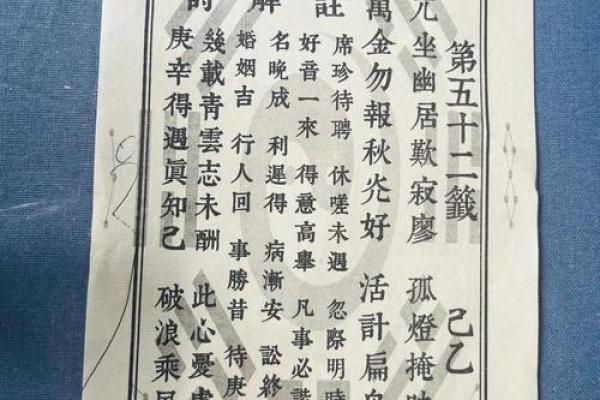 第五十二籤 己乙
兀坐幽居歎寂廖 孤燈掩
萬金勿報秋光好 活計扁
註
席珍待聘 休嗟未遇 忽際明時
好音一來 得意高舉 凡事必諧
解
名晚成 利遲得 病漸安 訟終
婚姻吉 行人回 事勝昔 待庚
幾載青雲志未酬 此心憂
庚辛得遇眞知己 破浪乘